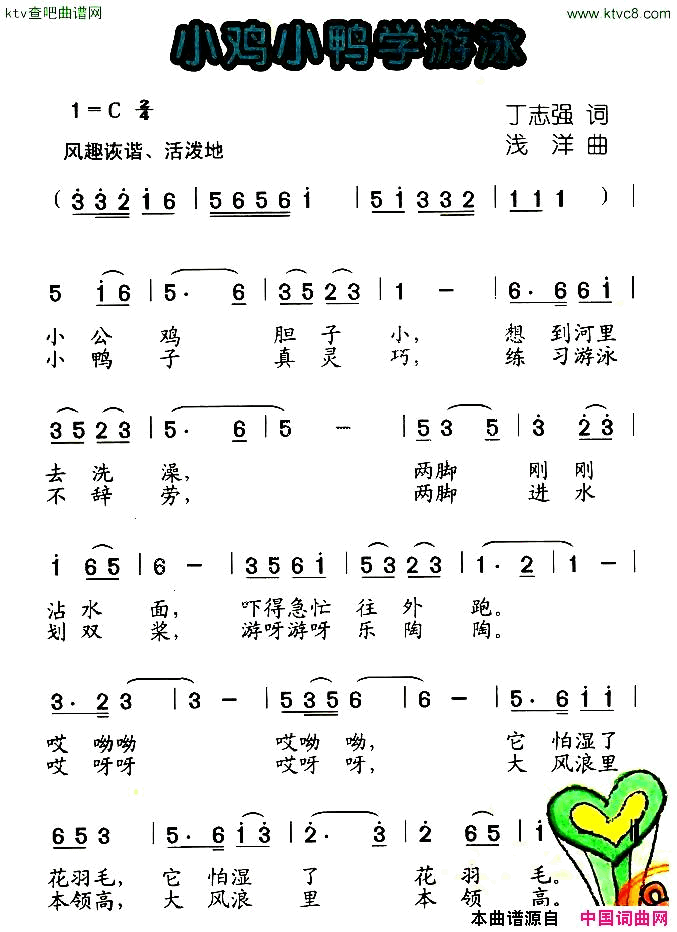 ktv查吧曲谱网
www.ktvc8.com
小鸡小鸭学游泳
1=C 2/4
丁志强 词
风趣诙谐、活泼地
浅 洋 曲
( 3 3 2 1 6 | 5 6 5 6 1 | 5 1 3 3 2 | 1 1 1 ) |
5 1 6 | 5· 6 | 3 5 2 3 | 1 - | 6· 6 6 1 |
小 公 鸡 胆 子 小, 想 到河里
小 鸭 子 真 灵 巧, 练 习游泳
3 5 2 3 | 5· 6 | 5 - | 5 3 5 | 3 2 3 |
去 洗 澡, 两脚 刚 刚
不 辞 劳, 两脚 进 水
1 6 5 | 6 - | 3 5 6 1 | 5 3 2 3 | 1· 2 | 1 - |
沾 水 面, 吓得急忙 往 外 跑。
划 双 桨, 游呀游呀 乐 陶 陶。
3· 2 3 | 3 - | 5 3 5 6 | 6 - | 5· 6 1 1 |
哎 呦呦 哎呦 呦, 它 怕湿了
哎 呀呀 哎呀 呀, 大 风浪里
6 5 3 | 5· 6 1 3 | 2· 3 | 2 6 5 | 1
花羽毛, 它 怕湿 了 花 羽 毛。
本领高, 大 风浪 里 本 领 高。
本曲谱源自
中国词曲网